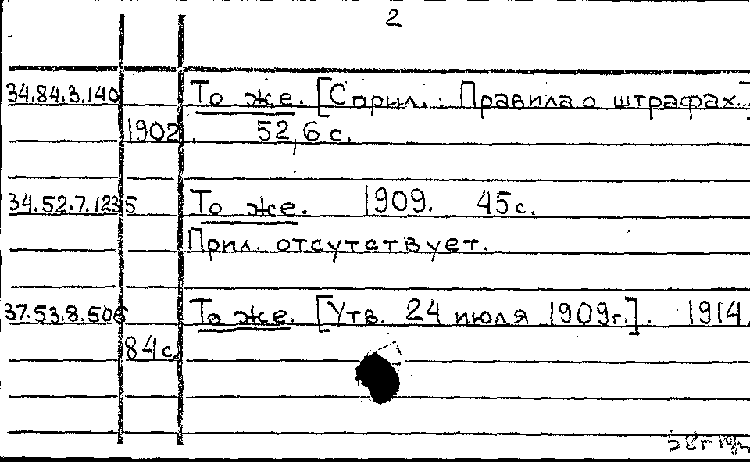 2
34.84.3.140 То же. [С прил.: Правила о штрафах.]
1902. 52, 6 с.
34.52.7.1235 То же. 1909. 45 с.
Прил. отсутствует.
37.53.8.506 То же. [Утв. 24 июля 1909г.]. 1914.
84 с.